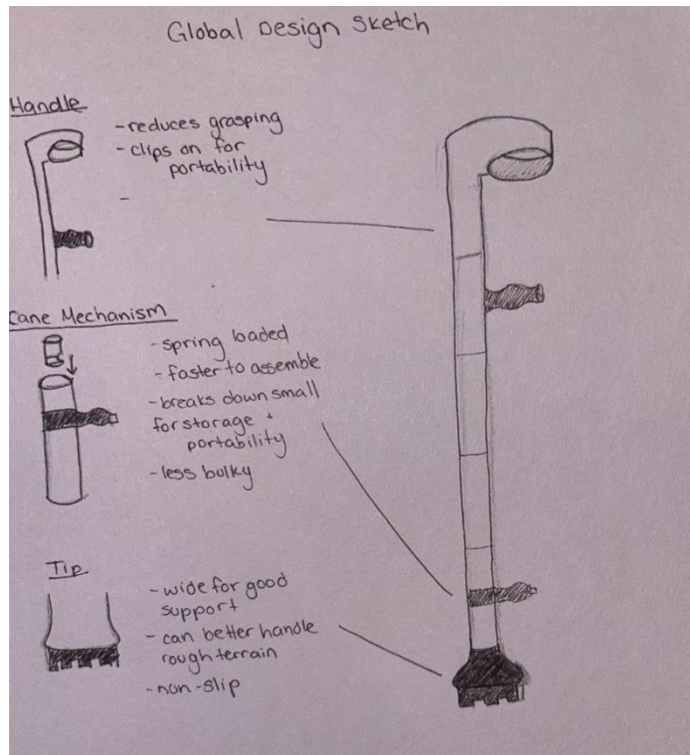 Global Design Sketch
Handle
- reduces grasping
- clips on for
portability
-
Cane Mechanism
- spring loaded
- faster to assemble
- breaks down small
for storage +
portability
- less bulky
Tip
- wide for good
support
- can better handle
rough terrain
- non-slip